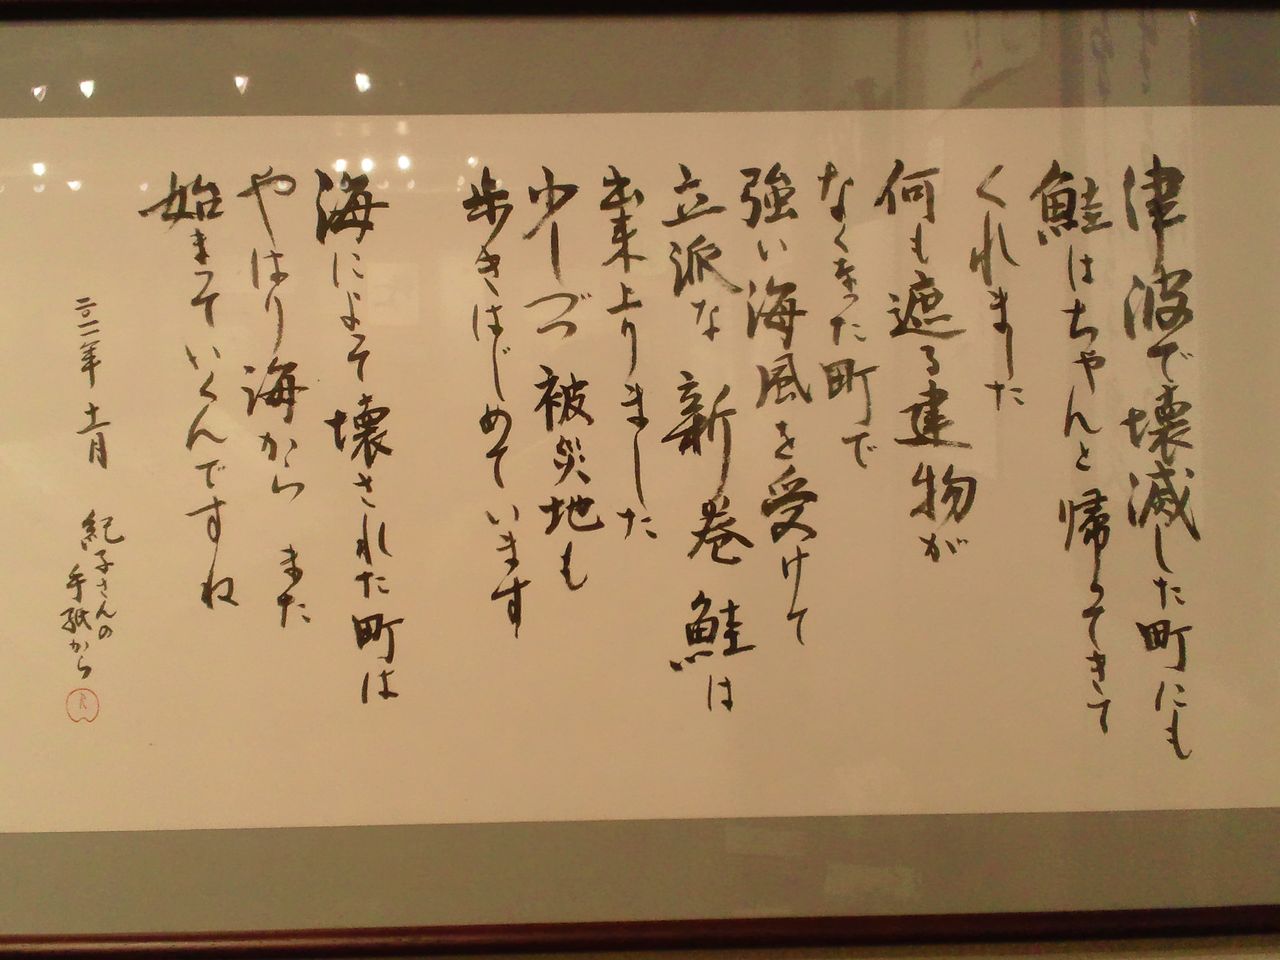 津波で壊滅した町にも
鮭はちゃんと帰ってきて
くれました
何も遮る建物が
なくなった町で
強い海風を受けて
立派な新巻鮭は
出来上りました
少しづつ被災地も
歩きはじめています
海によって壊された町は
やはり海から また
始まっていくんですね
二〇一一年 十一月 紀子さんの
手紙から